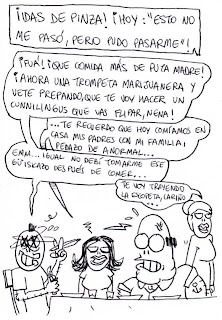 ¡IDAS DE PINZA! ¡HOY: "ESTO NO
ME PASÓ, PERO PUDO PASARME"!
¡FUA! ¡QUE COMIDA MÁS DE PUTA MADRE!
¡AHORA UNA TROMPETA MARIJUANERA Y
VETE PREPANDO, QUE TE VOY HACER UN
CUNNILINGUS QUE VAS FLIPAR, NENA!
...TE RECUERDO QUE HOY COMÍAMOS EN
CASA MIS PADRES CON MI FAMILIA,
PEDAZO DE ANORMAL...
EMM... IGUAL NO DEBÍ TOMARME ESE
GÜISKAZO DESPUÉS DE COMER...
TE VOY TRAYENDO
LA ESCOPETA, CARIÑO